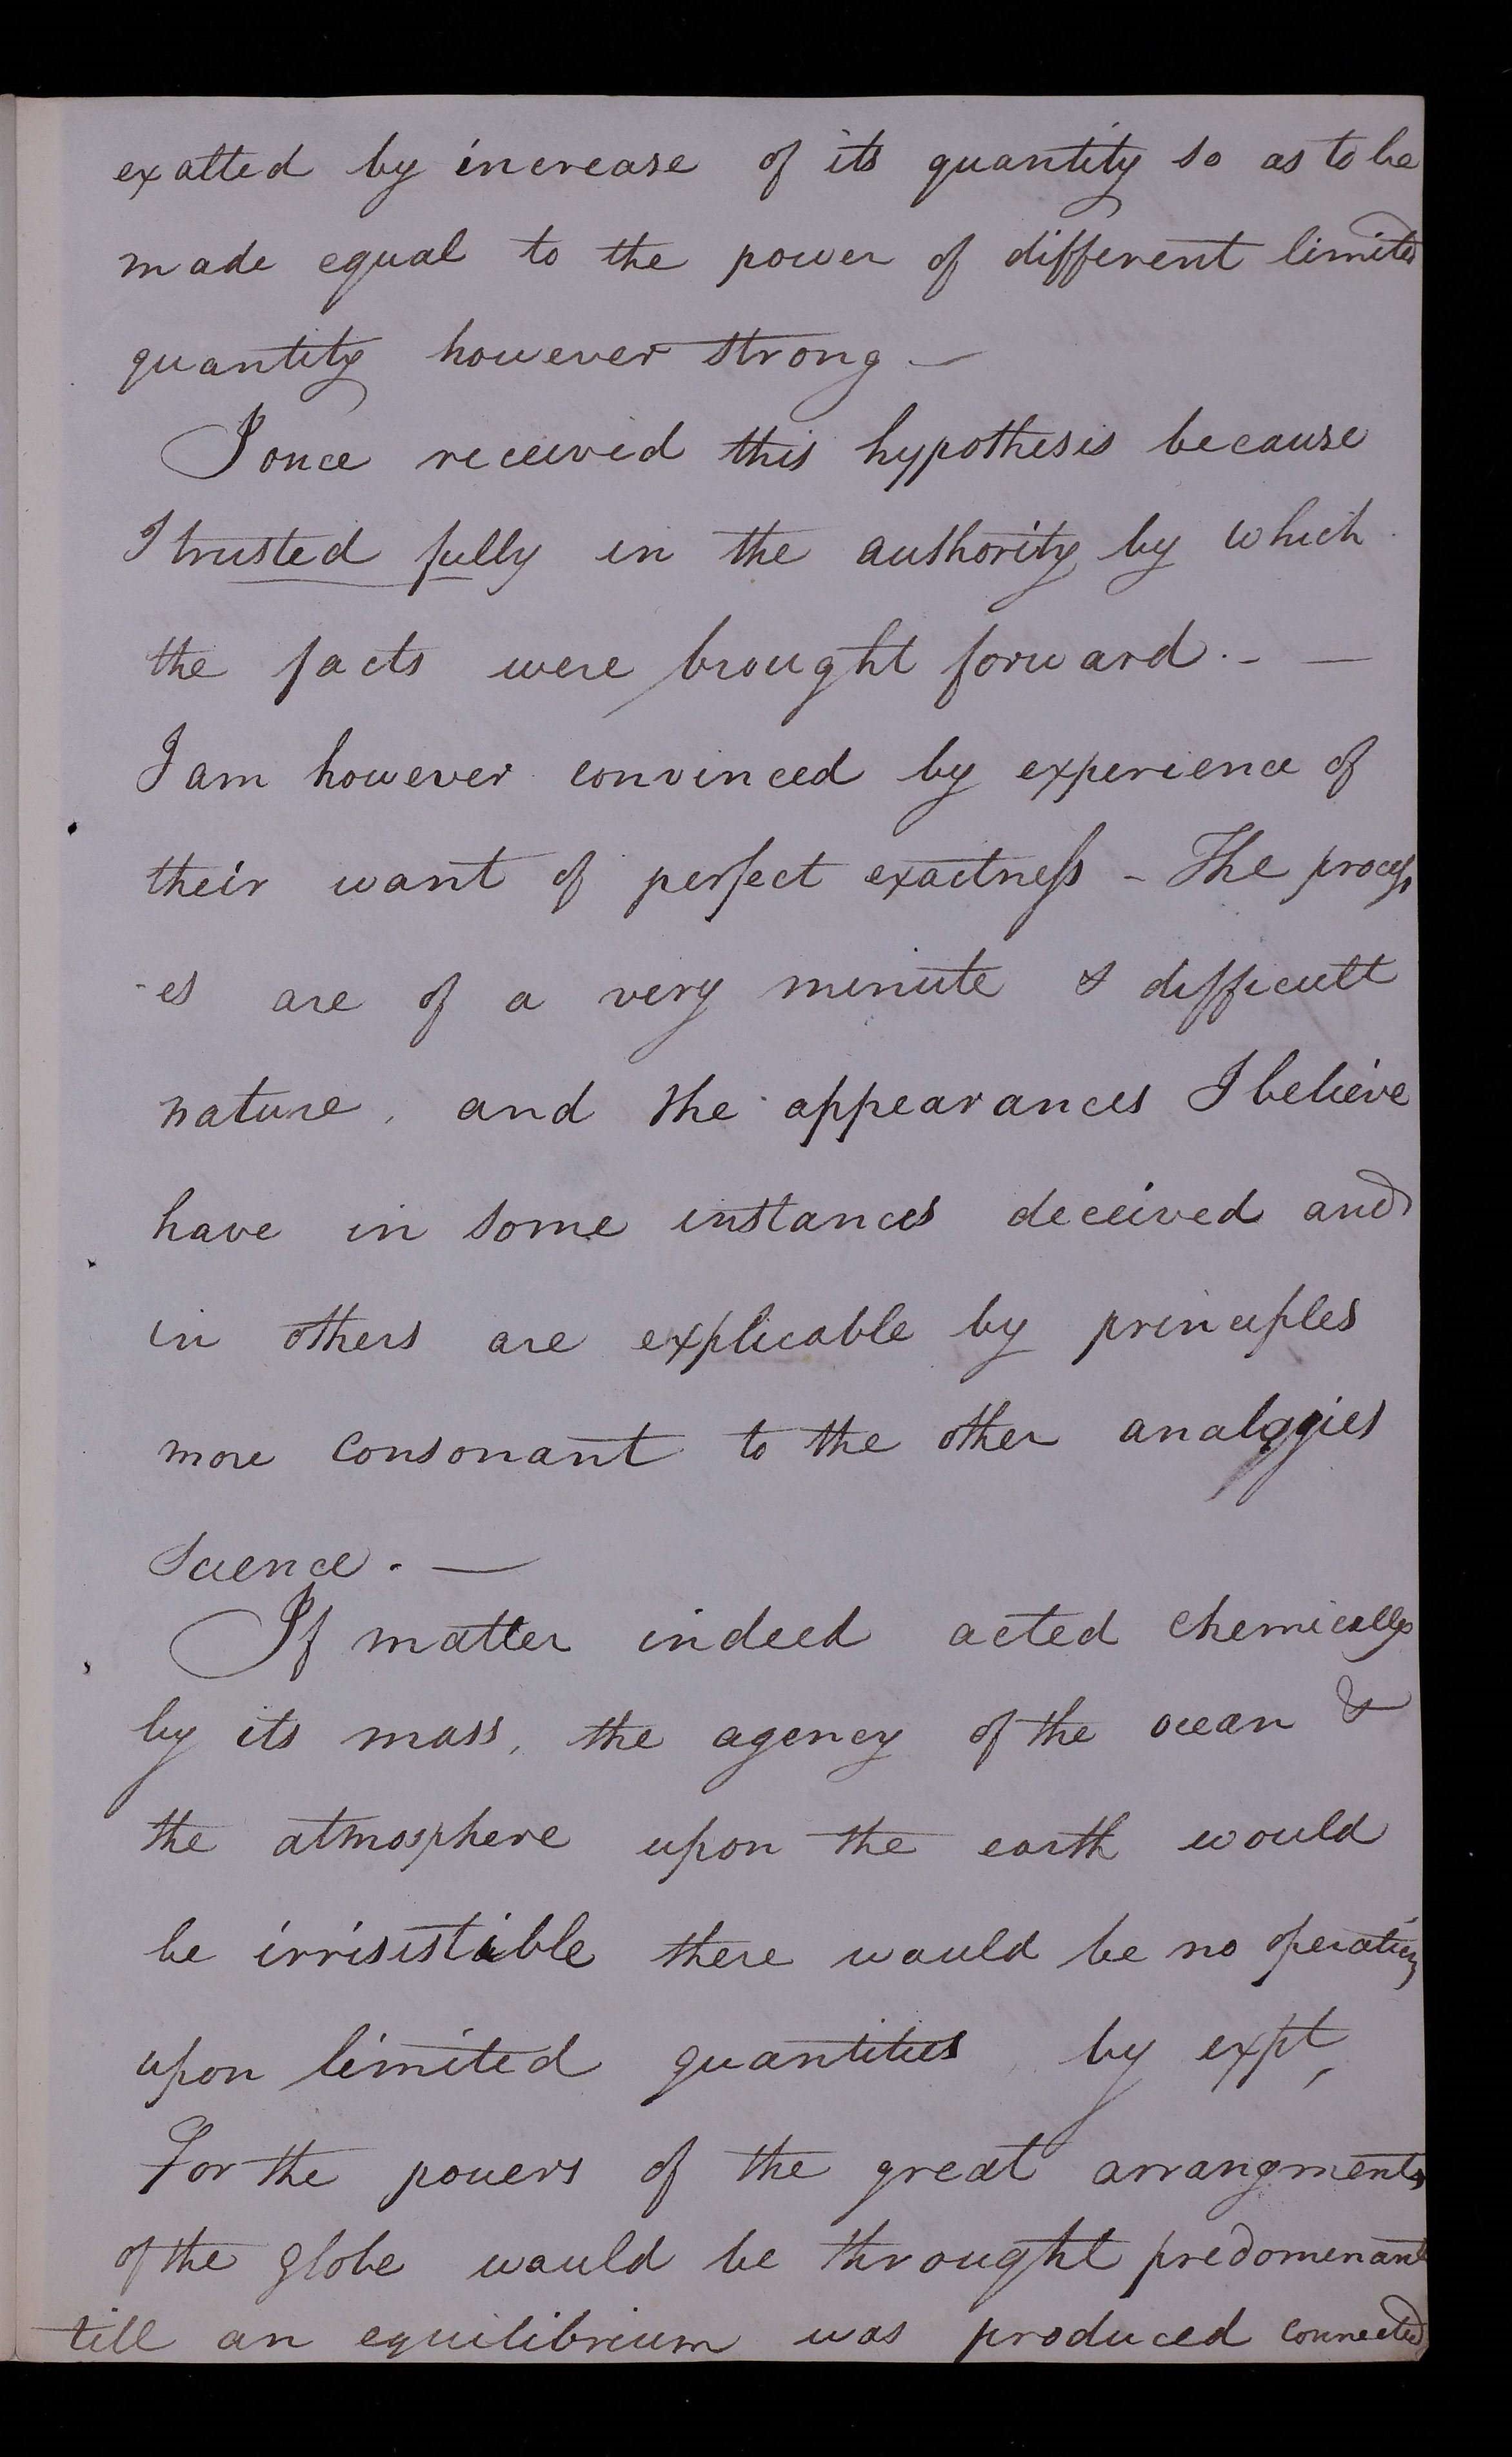 exalted by increase of its quantity so as to be
made equal to the power of different limited
quantity however strong —
I once received this hypothesis because
I trusted fully in the authority by which
the facts were brought forward. - —
I am however convinced by experience of
their want of perfect exactness - The process
-es are of a very minute & difficult
nature, and the appearances I believe
have in some instances deceived and
in others are explicable by principles
more consonant to the other analogies
Science. —
If matter indeed acted chemically
by its mass, the agency of the ocean &
the atmosphere upon the earth would
be irrisistible there would be no operation
upon limited quantities by expt,
For the powers of the great arrangments
of the globe would be throught predomenant
till an equilibrium was produced connected